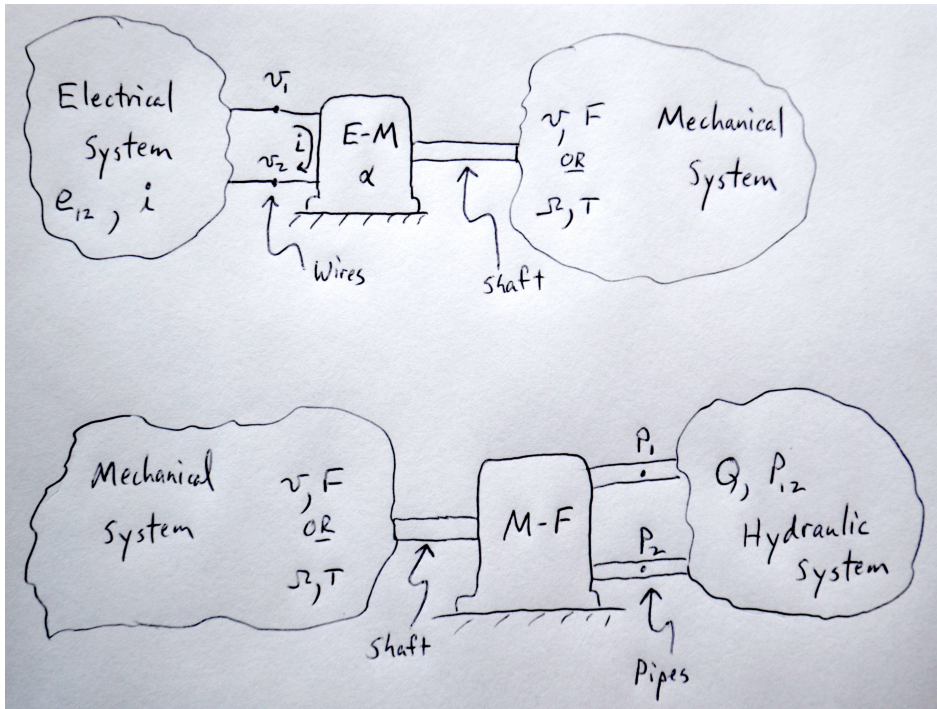 Electrical
System
e₁₂, i
v₁
v₂
i
Wires
E-M
α
Shaft
v, F
OR
Ω, T
Mechanical
System
Mechanical
System
v, F
OR
Ω, T
Shaft
M-F
P₁
P₂
Pipes
Q, P₁₂
Hydraulic
System